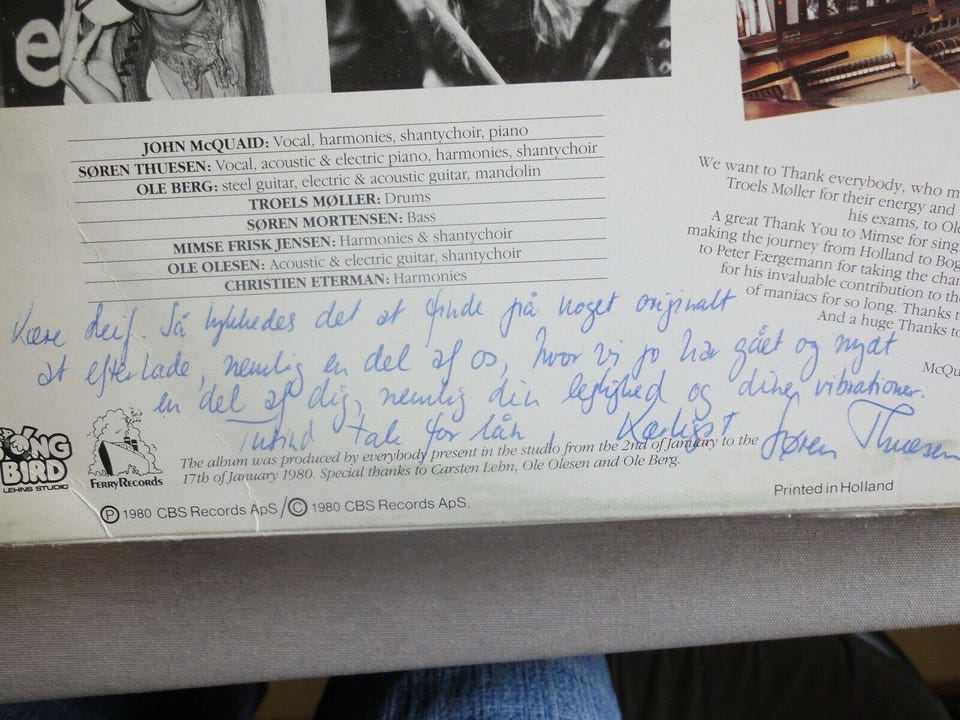 e
JOHN McQUAID: Vocal, harmonies, shantychoir, piano
SØREN THUESEN: Vocal, acoustic & electric piano, harmonies, shantychoir
OLE BERG: steel guitar, electric & acoustic guitar, mandolin
TROELS MØLLER: Drums
SØREN MORTENSEN: Bass
MIMSE FRISK JENSEN: Harmonies & shantychoir
OLE OLESEN: Acoustic & electric guitar, shantychoir
CHRISTIEN ETERMAN: Harmonies
We want to Thank everybody, who
Troels Møller for their energy and
his exams, to
A great Thank You to Mimse for
making the journey from Holland to
to Peter Færgemann for taking the
for his invaluable contribution to
of maniacs for so long. Thanks
And a huge Thanks
Kære Leif. Så lykkedes det at finde på noget originalt
at efterlade, nemlig en del af os, hvor vi jo har gået og nydt
en del af dig, nemlig din lejlighed og dine vibrationer.
Tusind tak for lån, Kærligst Søren Thuesen
SONG
BIRD
LEHNS STUDIO
FERRYRECORDS
The album was produced by everybody present in the studio from the 2nd of January to the
17th of January 1980. Special thanks to Carsten Lehn, Ole Olesen and Ole Berg.
Ⓟ 1980 CBS Records ApS / © 1980 CBS Records ApS.
Printed in Holland